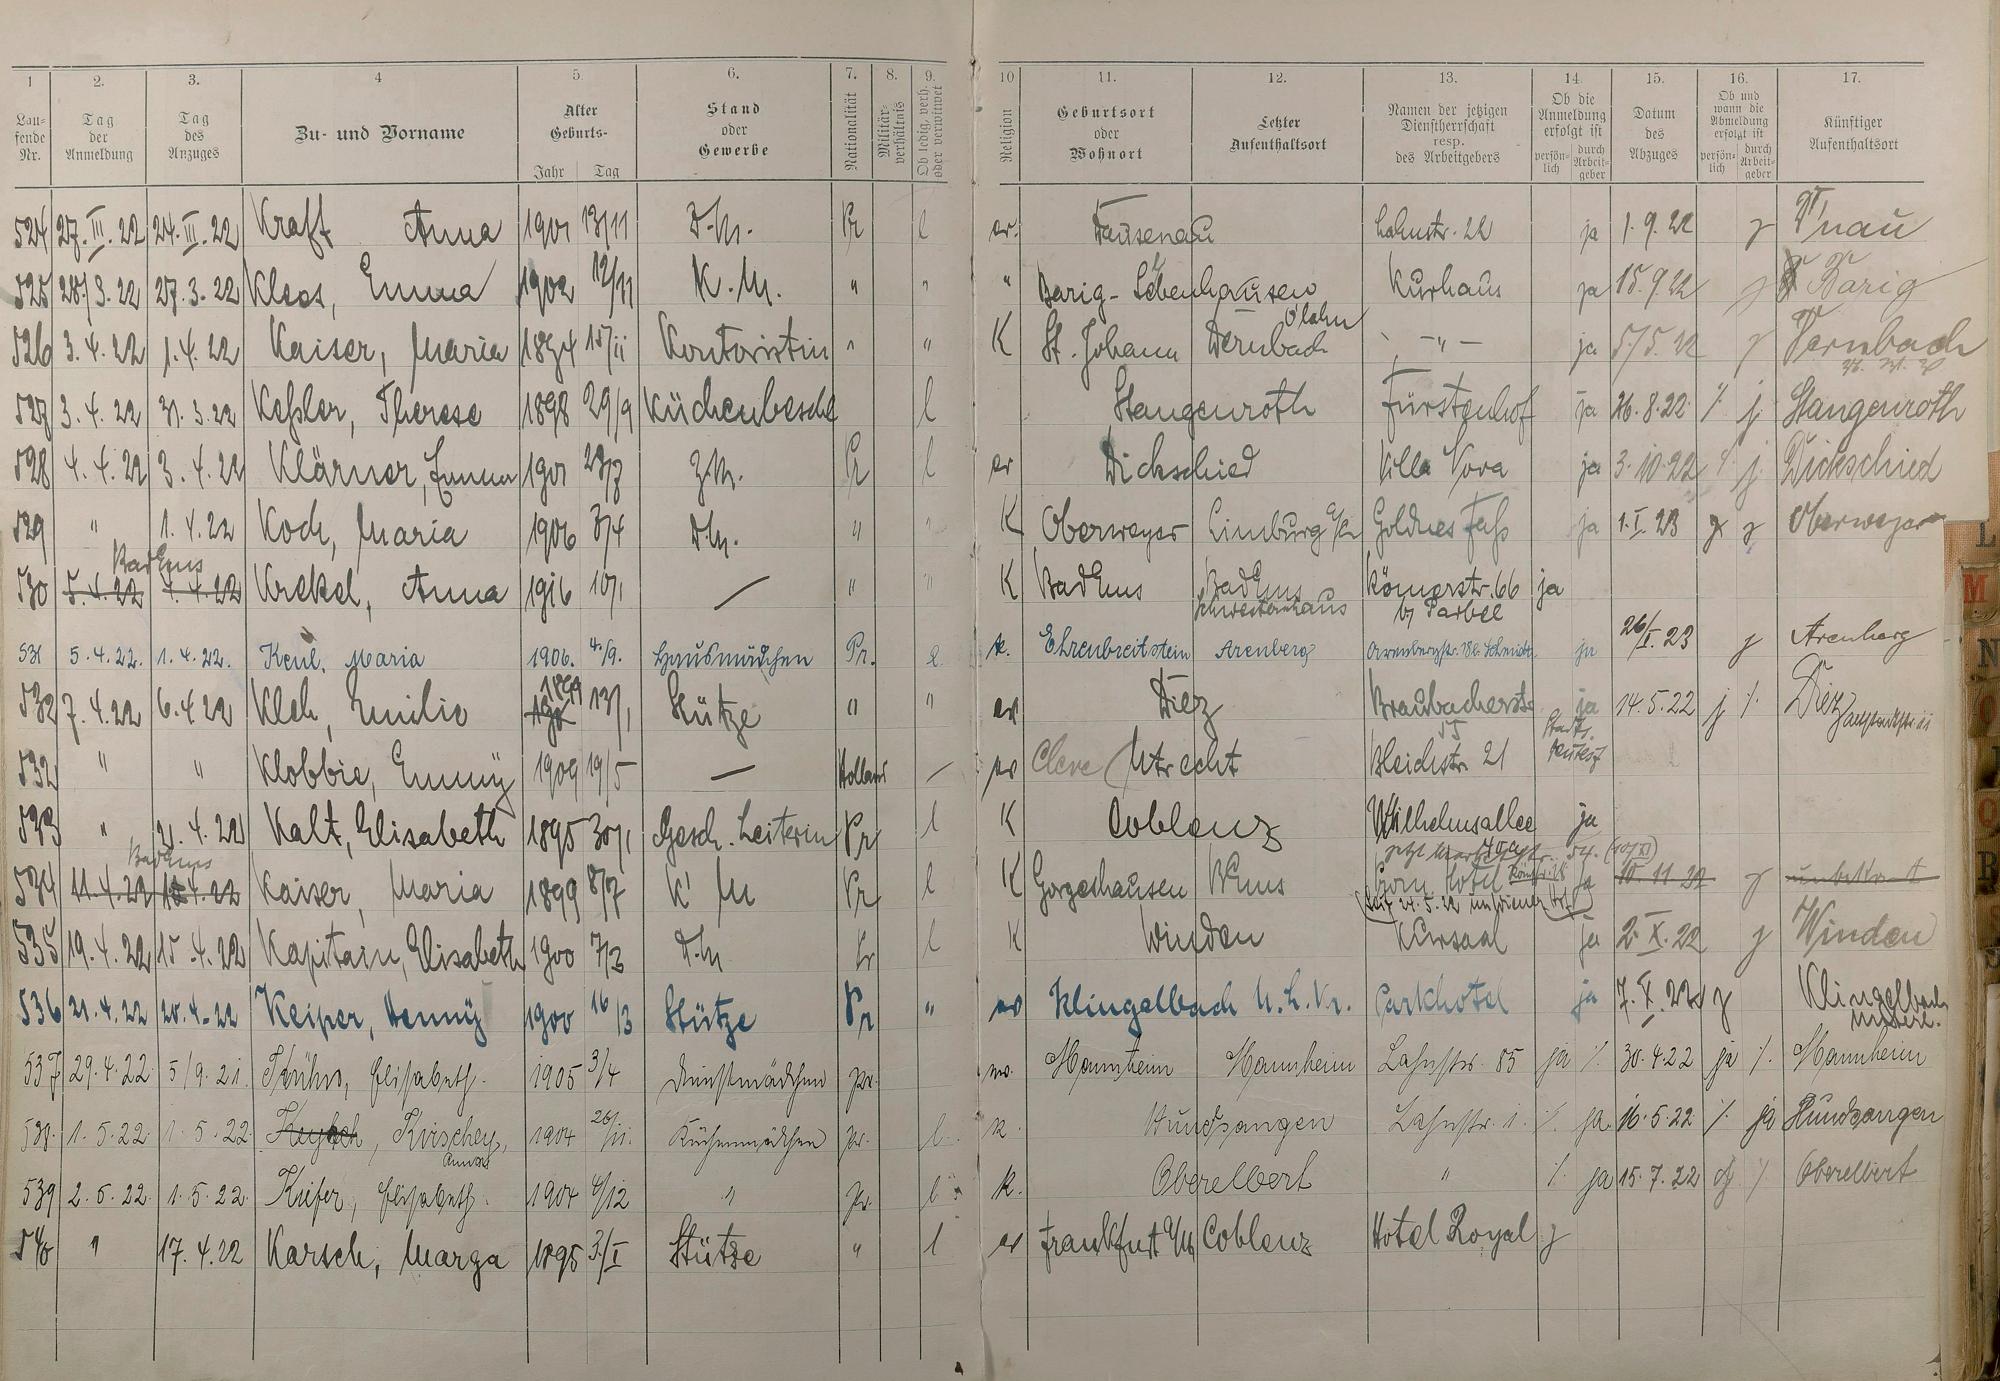 1 2. 3. 4 5. 6. 7. 8. 9. 10 11. 12. 13. 14. 15. 16. 17.
Lau-fende Nr. Tag der Anmeldung Tag des Anzuges Zu- und Vorname Alter Geburts- Jahr Tag Stand oder Gewerbe Nationalität Militär-verhältnis Ob ledig, verh. oder verwitwet Religion Geburtsort oder Wohnort Letzter Aufenthaltsort Namen der jetzigen Dienstherrschaft resp. des Arbeitgebers Ob die Anmeldung erfolgt ist persön-lich durch Arbeit-geber Datum des Abzuges Ob und wann die Abmeldung erfolgt ist persön-lich durch Arbeit-geber Künftiger Aufenthaltsort
524 27. III. 22 24. III. 22 Kraft Anna 1901 13/11 D.M. Pr l ev. Dausenau Lahnstr. 22 ja 1. 9. 22 j
525 28/3. 22 27. 3. 22 Kloos, Emma 1902 12/11 K. M. " " " Barig-Selbenhausen Kurhaus ja 15. 9. 22 j Barig
526 3. 4. 22 1. 4. 22 Kaiser, Maria 1894 15/11 Kontoristin " " K St. Johann Dernbach -"- ja 5/5. 22 j Dernbach
527 3. 4. 22 31. 3. 22 Keßler, Therese 1898 29/9 Küchenbeschl l Stangenroth Fürstenhof ja 26. 8. 22 /. j. Stangenroth
528 4. 4. 22 3. 4. 22 Klärner, Emma 1901 Z.M. Pr l ev Dickschied Villa Nova ja 3. 10. 22 /. j. Dickschied
529 " 1. 4. 22 Koch, Maria 1906 3/4 D.M. " " K Oberweyer Limburg a/L Goldnes Faß ja 1. I. 23 j Oberweyer
Bad Ems
530 5. 4. 22 1. 4. 22 Krekel, Anna 1916 10/1 — " " K Bad Ems Bad Ems Römerstr. 66 ja
Schwesternhaus
531 5. 4. 22. 1. 4. 22. Keul, Maria 1906. 4./9. Hausmädchen Pr. l. k. Ehrenbreitstein Arenberg ja 26/I. 23 j Arenberg
532 7. 4. 22 6. 4. 22 Kleh, Emilie 1899 13/1 Stütze " " ev Diez Braubacherstr. ja 14. 5. 22 j /. Diez
55
532 " " Klobbie, Emmy 1909 19/5 — Holland — ev Cleve Utrecht Bleichstr. 21
533 " 21. 4. 22 Kalt, Elisabeth 1895 30/1 Gesch. Leiterin Pr l K Coblenz Wilhelmsallee ja
Bad Ems
534 11. 4. 22 Kaiser, Maria 1899 8/7 K M Pr l K Gorgeshausen B Ems Hotel ja 10. 11. 22 j
535 19. 4. 22 15. 4. 22 Kapitain, Elisabeth 1900 7/3 D.M Pr l K Winden Kursaal ja 2. X. 22 j Winden
536 21. 4. 22 20. 4. 22 Keiper, Henny 1900 16/3 Stütze Pr " ev Klingelbach U. L. Kr. Parkhotel ja 7. X. 22 j Klingelbach
537 29. 4. 22 5/9. 21. Kühn, Elisabeth. 1905 3/4 Dienstmädchen pr. Mannheim Mannheim Lahnstr. 85 ja /. 30. 4. 22 ja /. Mannheim
538. 1. 5. 22. 1. 5. 22. Kirschey, 1904 26/11. Küchenmädchen pr. l. k. Hundsangen Lahnstr. 1. /. ja. 16. 5. 22 /. ja Hundsangen
Anna
539 2. 5. 22. 1. 5. 22. Kiefer, Elisabeth. 1904 6/12 " pr. l. k. Oberelbert " /. ja 15. 7. 22 /. Oberelbert
540 " 17. 4. 22 Karsch, Marga 1895 3./I Stütze " l ev Frankfurt a/M Coblenz Hotel Royal j
L
M
N
O
P
Q
R
S